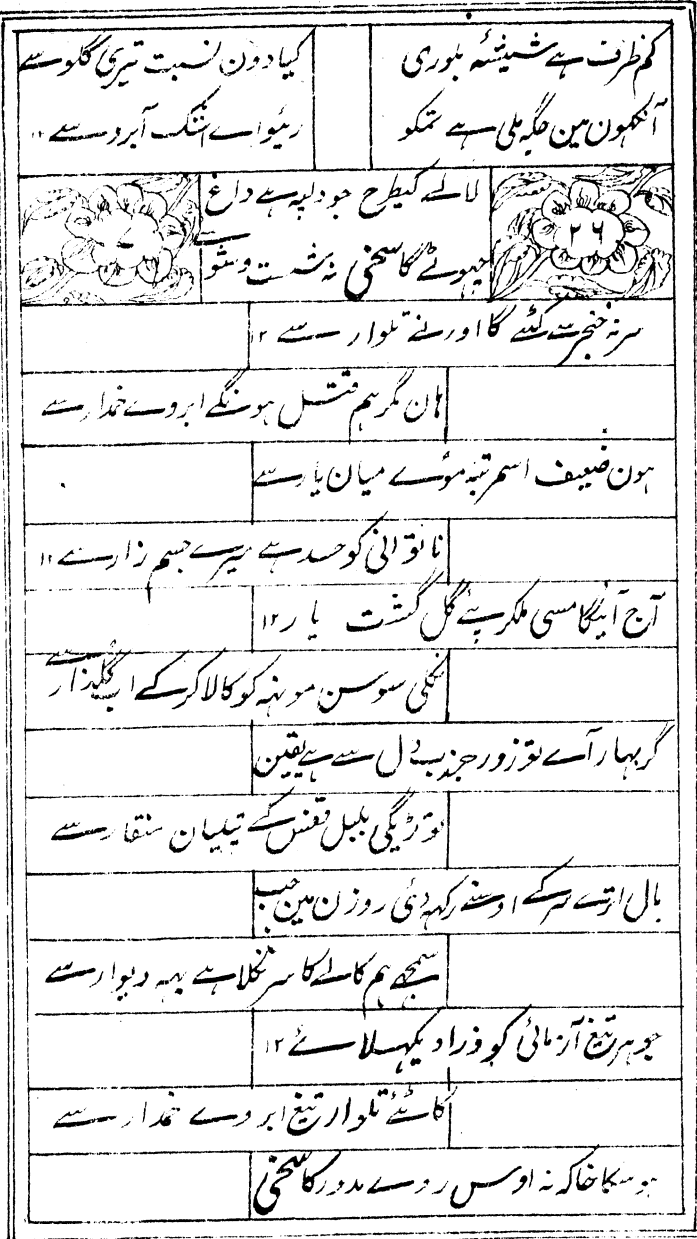 کم ظرف ہے شیشئہ بلوری
کیا دون نسبت تیری گلو سے
آنکھون مین جگہ ملی ہے تمکو
رہیو اے اشک آبرو سے ۱۲
لالے کیطرح جو دلپہ ہے داغ
چہوٹے گا سخی نہ شست و شو سے
۲۶
سر نہ خنجر سے کٹے گا اور نے تلوار سے ۱۲
ہان مگر ہم قتل ہونگے ابروے خمدار سے
ہون ضعیف اسمرتبہ موے میان یار سے
ناتوانی کو حسد ہے میرے جسم زار سے ۱۲
آج آئیگا مسی ملکر پئے گل گشت یار ۱۲
نکلی سوسن مونہہ کو کالا کرکے اب گلذار سے
گر بہار آے تو زور جذب دل سے ہے یقین
توڑیگی بلبل قفس کے تیلیان منقار سے
بال اترے سر کے اوسنے رکہہ دئی روزن مین جب
سمجھے ہم کالے کا سر نکلا ہے یہہ دیوار سے
جوہر تیغ آزمائی کو ذرا دیکہلائے ۱۲
کاٹئے تلوار تیغ ابروے خمدار سے
ہو سکا خاکہ نہ اوس روے مدور کا سخی